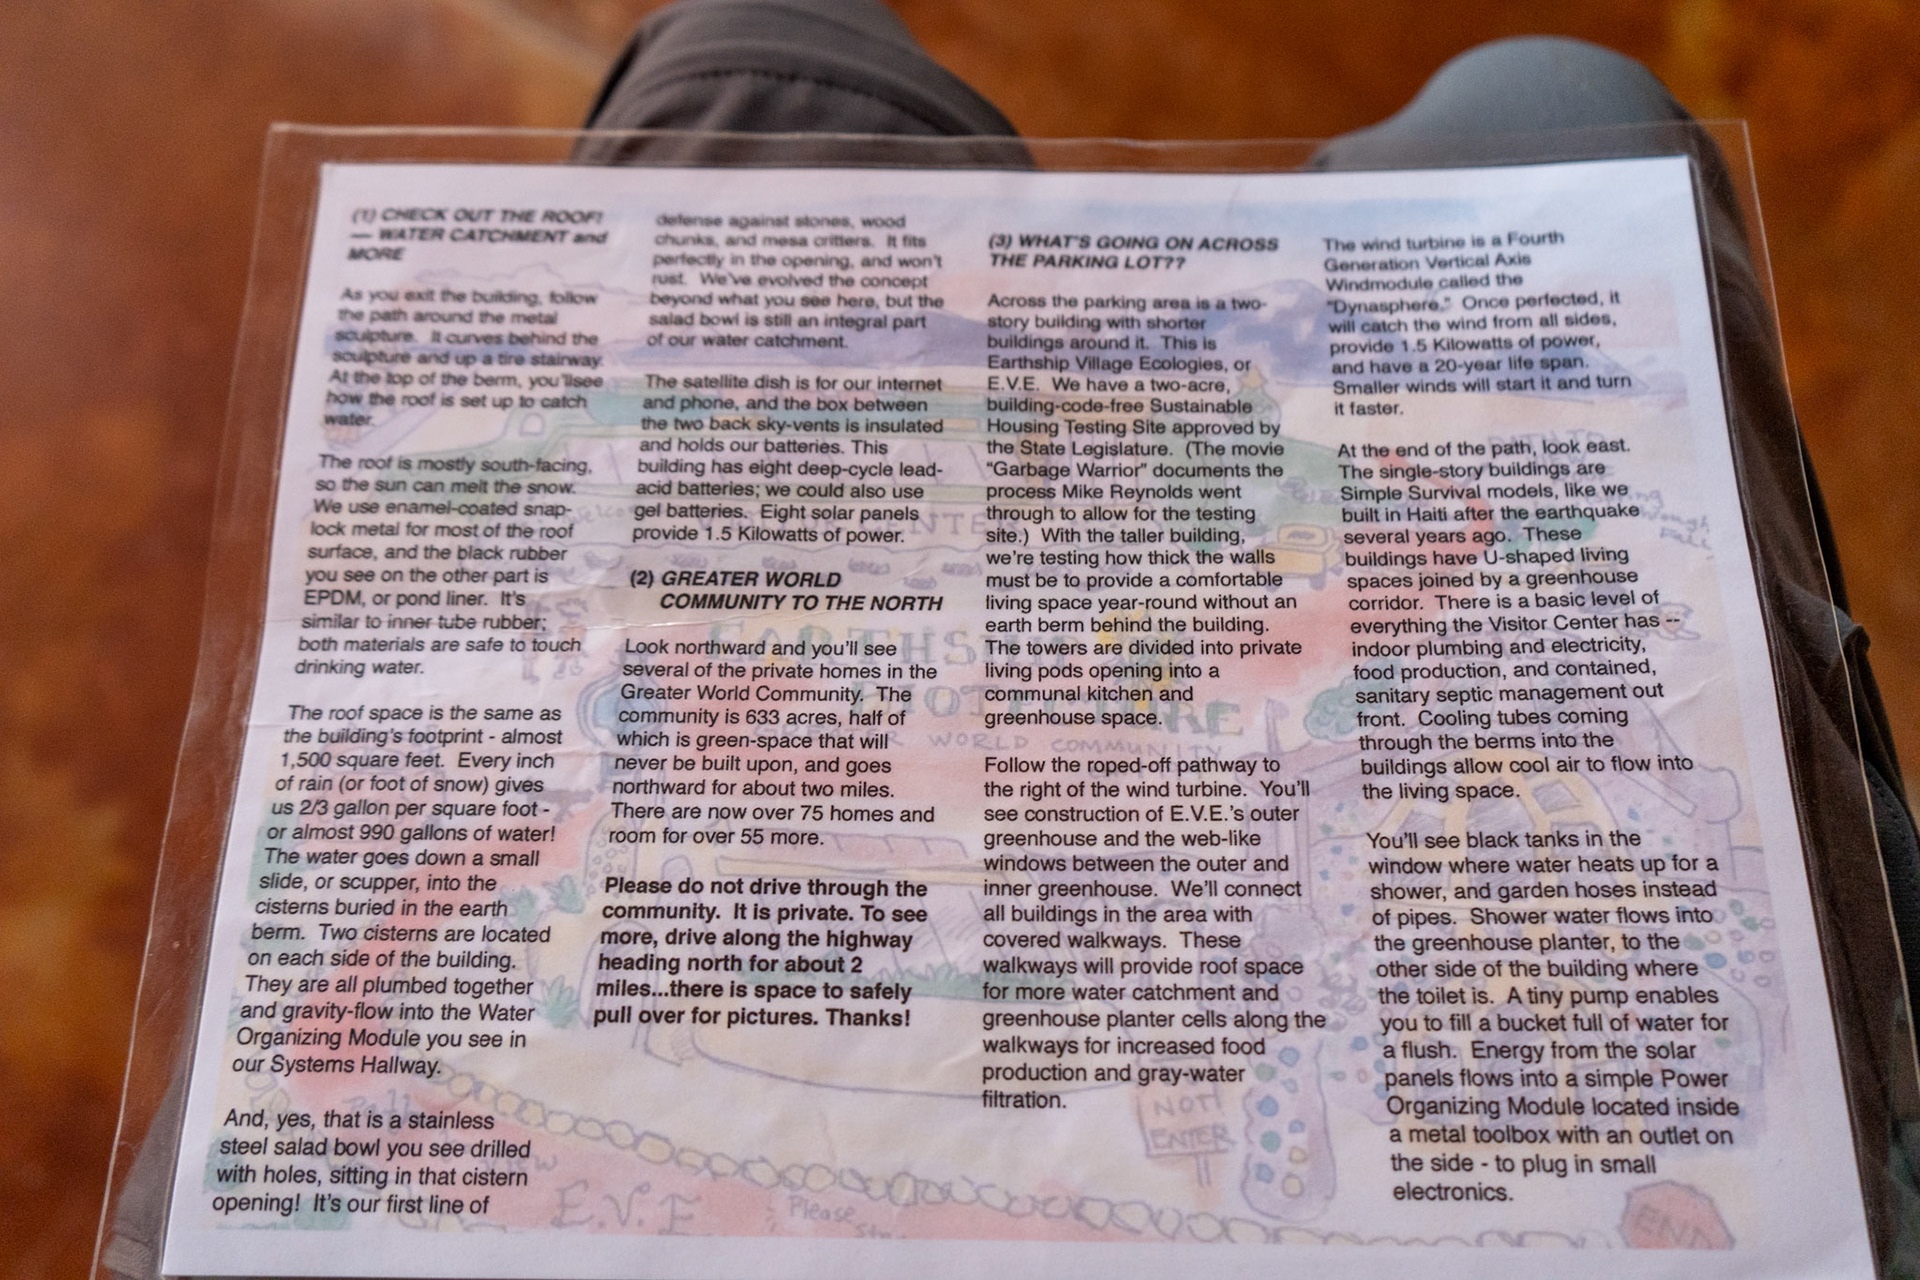 (1) CHECK OUT THE ROOF!
— WATER CATCHMENT and
MORE
As you exit the building, follow
the path around the metal
sculpture. It curves behind the
sculpture and up a tire stairway.
At the top of the berm, you'llsee
how the roof is set up to catch
water.
The roof is mostly south-facing,
so the sun can melt the snow.
We use enamel-coated snap-
lock metal for most of the roof
surface, and the black rubber
you see on the other part is
EPDM, or pond liner. It's
similar to inner tube rubber;
both materials are safe to touch
drinking water.
The roof space is the same as
the building's footprint - almost
1,500 square feet. Every inch
of rain (or foot of snow) gives
us 2/3 gallon per square foot -
or almost 990 gallons of water!
The water goes down a small
slide, or scupper, into the
cisterns buried in the earth
berm. Two cisterns are located
on each side of the building.
They are all plumbed together
and gravity-flow into the Water
Organizing Module you see in
our Systems Hallway.
And, yes, that is a stainless
steel salad bowl you see drilled
with holes, sitting in that cistern
opening! It's our first line of
defense against stones, wood
chunks, and mesa critters. It fits
perfectly in the opening, and won't
rust. We've evolved the concept
beyond what you see here, but the
salad bowl is still an integral part
of our water catchment.
The satellite dish is for our internet
and phone, and the box between
the two back sky-vents is insulated
and holds our batteries. This
building has eight deep-cycle lead-
acid batteries; we could also use
gel batteries. Eight solar panels
provide 1.5 Kilowatts of power.
(2) GREATER WORLD
COMMUNITY TO THE NORTH
Look northward and you'll see
several of the private homes in the
Greater World Community. The
community is 633 acres, half of
which is green-space that will
never be built upon, and goes
northward for about two miles.
There are now over 75 homes and
room for over 55 more.
Please do not drive through the
community. It is private. To see
more, drive along the highway
heading north for about 2
miles...there is space to safely
pull over for pictures. Thanks!
(3) WHAT'S GOING ON ACROSS
THE PARKING LOT??
Across the parking area is a two-
story building with shorter
buildings around it. This is
Earthship Village Ecologies, or
E.V.E. We have a two-acre,
building-code-free Sustainable
Housing Testing Site approved by
the State Legislature. (The movie
"Garbage Warrior" documents the
process Mike Reynolds went
through to allow for the testing
site.) With the taller building,
we're testing how thick the walls
must be to provide a comfortable
living space year-round without an
earth berm behind the building.
The towers are divided into private
living pods opening into a
communal kitchen and
greenhouse space.
Follow the roped-off pathway to
the right of the wind turbine. You'll
see construction of E.V.E.'s outer
greenhouse and the web-like
windows between the outer and
inner greenhouse. We'll connect
all buildings in the area with
covered walkways. These
walkways will provide roof space
for more water catchment and
greenhouse planter cells along the
walkways for increased food
production and gray-water
filtration.
The wind turbine is a Fourth
Generation Vertical Axis
Windmodule called the
"Dynasphere." Once perfected, it
will catch the wind from all sides,
provide 1.5 Kilowatts of power,
and have a 20-year life span.
Smaller winds will start it and turn
it faster.
At the end of the path, look east.
The single-story buildings are
Simple Survival models, like we
built in Haiti after the earthquake
several years ago. These
buildings have U-shaped living
spaces joined by a greenhouse
corridor. There is a basic level of
everything the Visitor Center has --
indoor plumbing and electricity,
food production, and contained,
sanitary septic management out
front. Cooling tubes coming
through the berms into the
buildings allow cool air to flow into
the living space.
You'll see black tanks in the
window where water heats up for a
shower, and garden hoses instead
of pipes. Shower water flows into
the greenhouse planter, to the
other side of the building where
the toilet is. A tiny pump enables
you to fill a bucket full of water for
a flush. Energy from the solar
panels flows into a simple Power
Organizing Module located inside
a metal toolbox with an outlet on
the side - to plug in small
electronics.
EARTHSHIP
GREATER WORLD COMMUNITY
NOT!
ENTER
E.V.E
Please
END